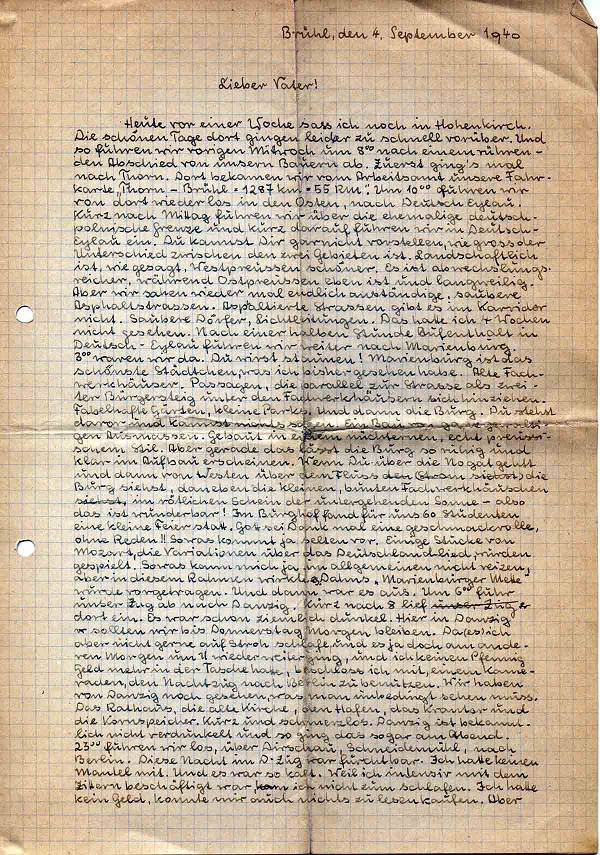 Brühl, den 4. September 1940
Lieber Vater!
Heute vor einer Woche sass ich noch in Hohenkirch.
Die schönen Tage dort gingen leider zu schnell vorüber. Und
so führen wir vorigen Mittwoch um 8⁰⁰ nach einem rühren-
den Abschied von unsern Bauern ab. Zuerst ging's mal
nach Thorn. Dort bekamen wir vom Arbeitsamt unsere Fahr-
karte „Thorn - Brühl = 1287 km = 55 RM." Um 10⁰⁰ führen wir
von dort wieder los in den Osten, nach Deutsch Eylau.
Kurz nach Mittag führen wir über die ehemalige deutsch-
polnische Grenze und kurz darauf führen wir in Deutsch-
Eylau ein. Du kannst Dir garnicht vorstellen, wie gross der
Unterschied zwischen den zwei Gebieten ist. Landschaftlich
ist, wie gesagt, Westpreussen schöner. Es ist abwechslungs-
reicher, während Ostpreussen eben ist und langweilig.
Aber wir sahen wieder mal endlich anständige, saubere
Asphaltstrassen. Asphaltierte Strassen gibt es im Korridor
nicht. Saubere Dörfer, Lichtleitungen. Das hatte ich 4 Wochen
nicht gesehen. Nach einer halben Stunde Aufenthalt in
Deutsch-Eylau führen wir weiter nach Marienburg.
3⁰⁰ waren wir da. Du wirst staunen! Marienburg ist das
schönste Städtchen, was ich bisher gesehen habe. Alte Fach-
werkhäuser. Passagen, die parallel zur Strasse als zwei-
ter Bürgersteig unter den Fachwerkhäusern sich hinziehen.
Fabelhafte Gärten, kleine Parks. Und dann die Burg. Du stehst
davor und kannst nichts sagen. Ein Bau von ganz gewalti-
gen Ausmassen. Gebaut in einem nüchternen, echt preussi-
schem Stil. Aber gerade das lässt die Burg so ruhig und
klar im Aufbau erscheinen. Wenn Du über die Nogat gehst
und dann von Westen über dem Fluss den Strom siehst) die
Burg siehst, daneben die kleinen, bunten Fachwerkhäuschen
siehst, im rötlichen Schein der untergehenden Sonne - also
das ist wunderbar! Im Burghof fand für uns 60 Studenten
eine kleine Feier statt. Gott sei Dank mal eine geschmackvolle,
ohne Reden!! Sowas kommt ja selten vor. Einige Stücke von
Mozart, die Variationen über das Deutschlandlied, wurden
gespielt. Sowas kann mich ja im allgemeinen nicht reizen,
aber in diesem Rahmen wirklich. Dahms „Marienburger Mette"
wurde vorgetragen. Und dann war es aus. Um 6⁰⁰ fuhr
unser Zug ab nach Danzig. Kurz nach 8 lief unser Zug er
dort ein. Es war schon ziemlich dunkel. Hier in Danzig
sollten wir bis Donnerstag Morgen bleiben. Da (es) ich
aber nicht gerne auf Stroh schlafe, und es ja doch am ande-
ren Morgen um 11 wieder weiterging, und ich keinen Pfennig
Geld mehr in der Tasche hatte, beschloss ich mit einem Kame-
raden, den Nachtzug nach Berlin zu benutzen. Wir haben
von Danzig noch gesehen, was man unbedingt sehen muss.
Das Rathaus, die alte Kirche, den Hafen, das Krantor und
die Kornspeicher. Kurz und schmerzlos. Danzig ist bekannt-
lich nicht verdunkelt und so ging das sogar am Abend.
23⁰⁰ führen wir los, über Dirschau, Schneidemühl, nach
Berlin. Diese Nacht im D-Zug war furchtbar. Ich hatte keinen
Mantel mit. Und es war so kalt. Weil ich intensiv mit dem
Zittern beschäftigt war, kam ich nicht zum schlafen. Ich hatte
kein Geld, konnte mir auch nichts zu lesen kaufen. Aber